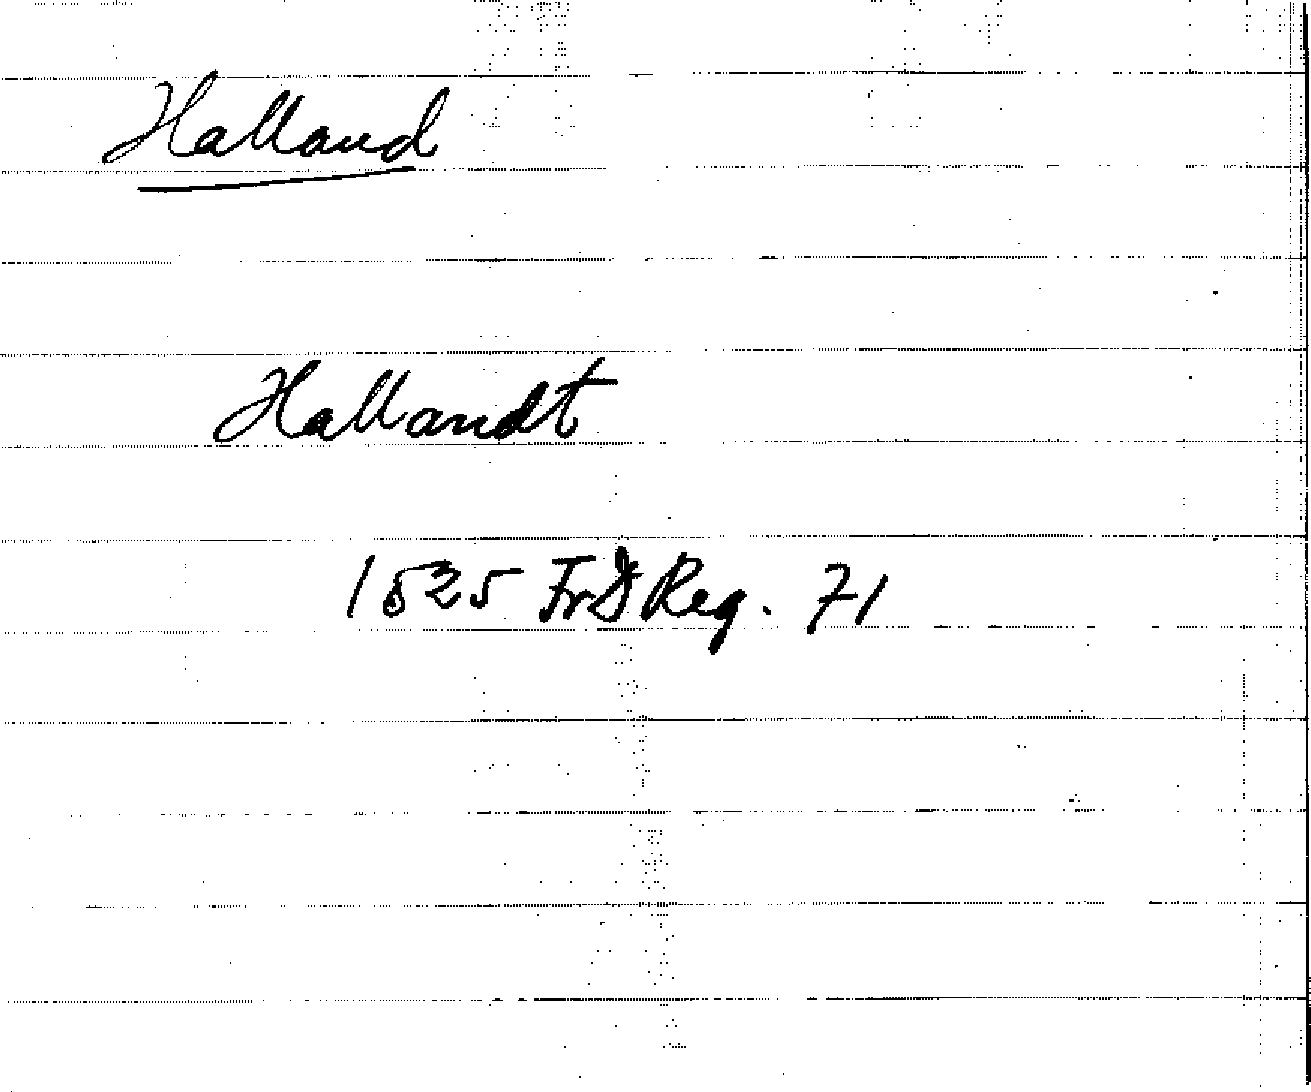 Halland
Hallandt
1525 Fr I Reg. 71